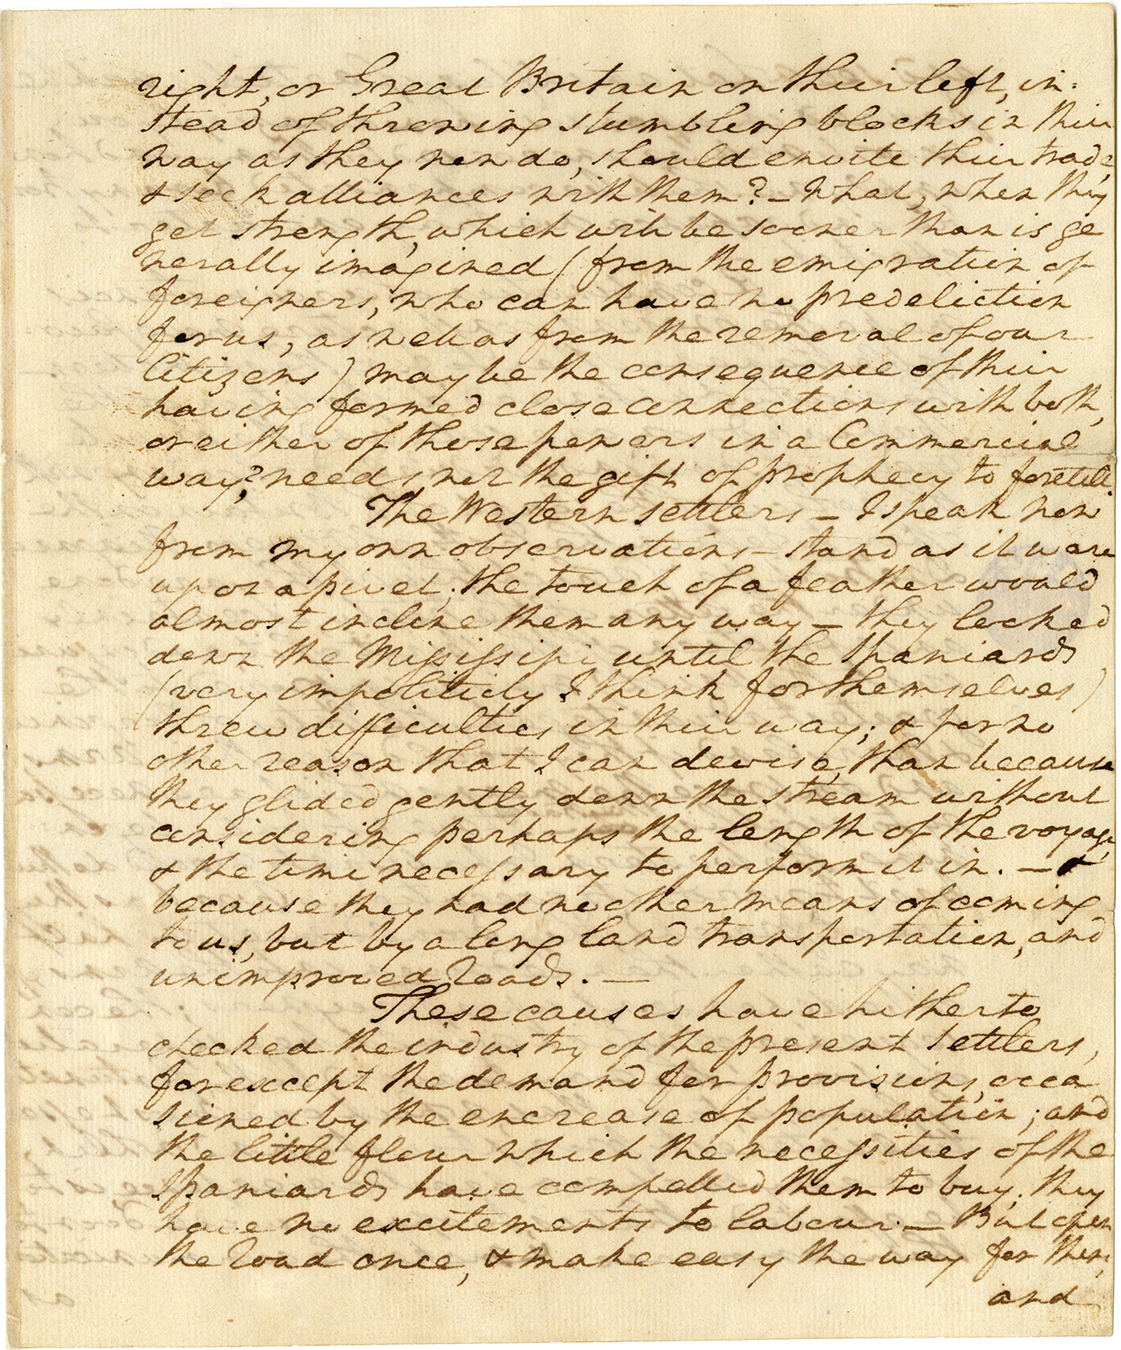 right, or Great Britain on their left, in:
stead of throwing stumbling blocks in their
way as they now do, should envite their trade
& seek alliances with them? – What, when they
get strength, which will be sooner than is ge
nerally imagined (from the emigration of
foreigners, who can have no predeliction
for us, as well as from the removal of our
Citizens) may be the consequence of their
having formed close connections with both,
or either of those powers in a Commercial
way? needs not the gift of prophecy to foretell.
The Western settlers – I speak now
from my own observations – stand as it were
upon a pivet; the touch of a feather would
almost incline them any way – they looked
down the Mississipi until the Spaniards
(very impoliticly I think for themselves)
threw difficulties in their way; & for no
other reason that I can devise, than because
they glided gently down the stream without
considering perhaps the length of the voyage,
& the time necessary to perform it in. – &
because they had no other means of coming
to us, but by a long land transportation, and
unimproved Roads. –
These causes have hitherto
checked the industry of the present settlers,
for except the demand for provisions, occa
sioned by the encrease of population; and
the little flour which the necessities of the
Spaniards have compelled them to buy, they
have no excitements to labour. – But open
the Road once, & make easy the way for them,
and